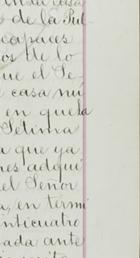 de la Ful
capaces
os de lo
ue el Se
casa nú
en que la
Setima
a que ya
nes adqui
el Señor
a, en térmi
nticuatro
ada ante